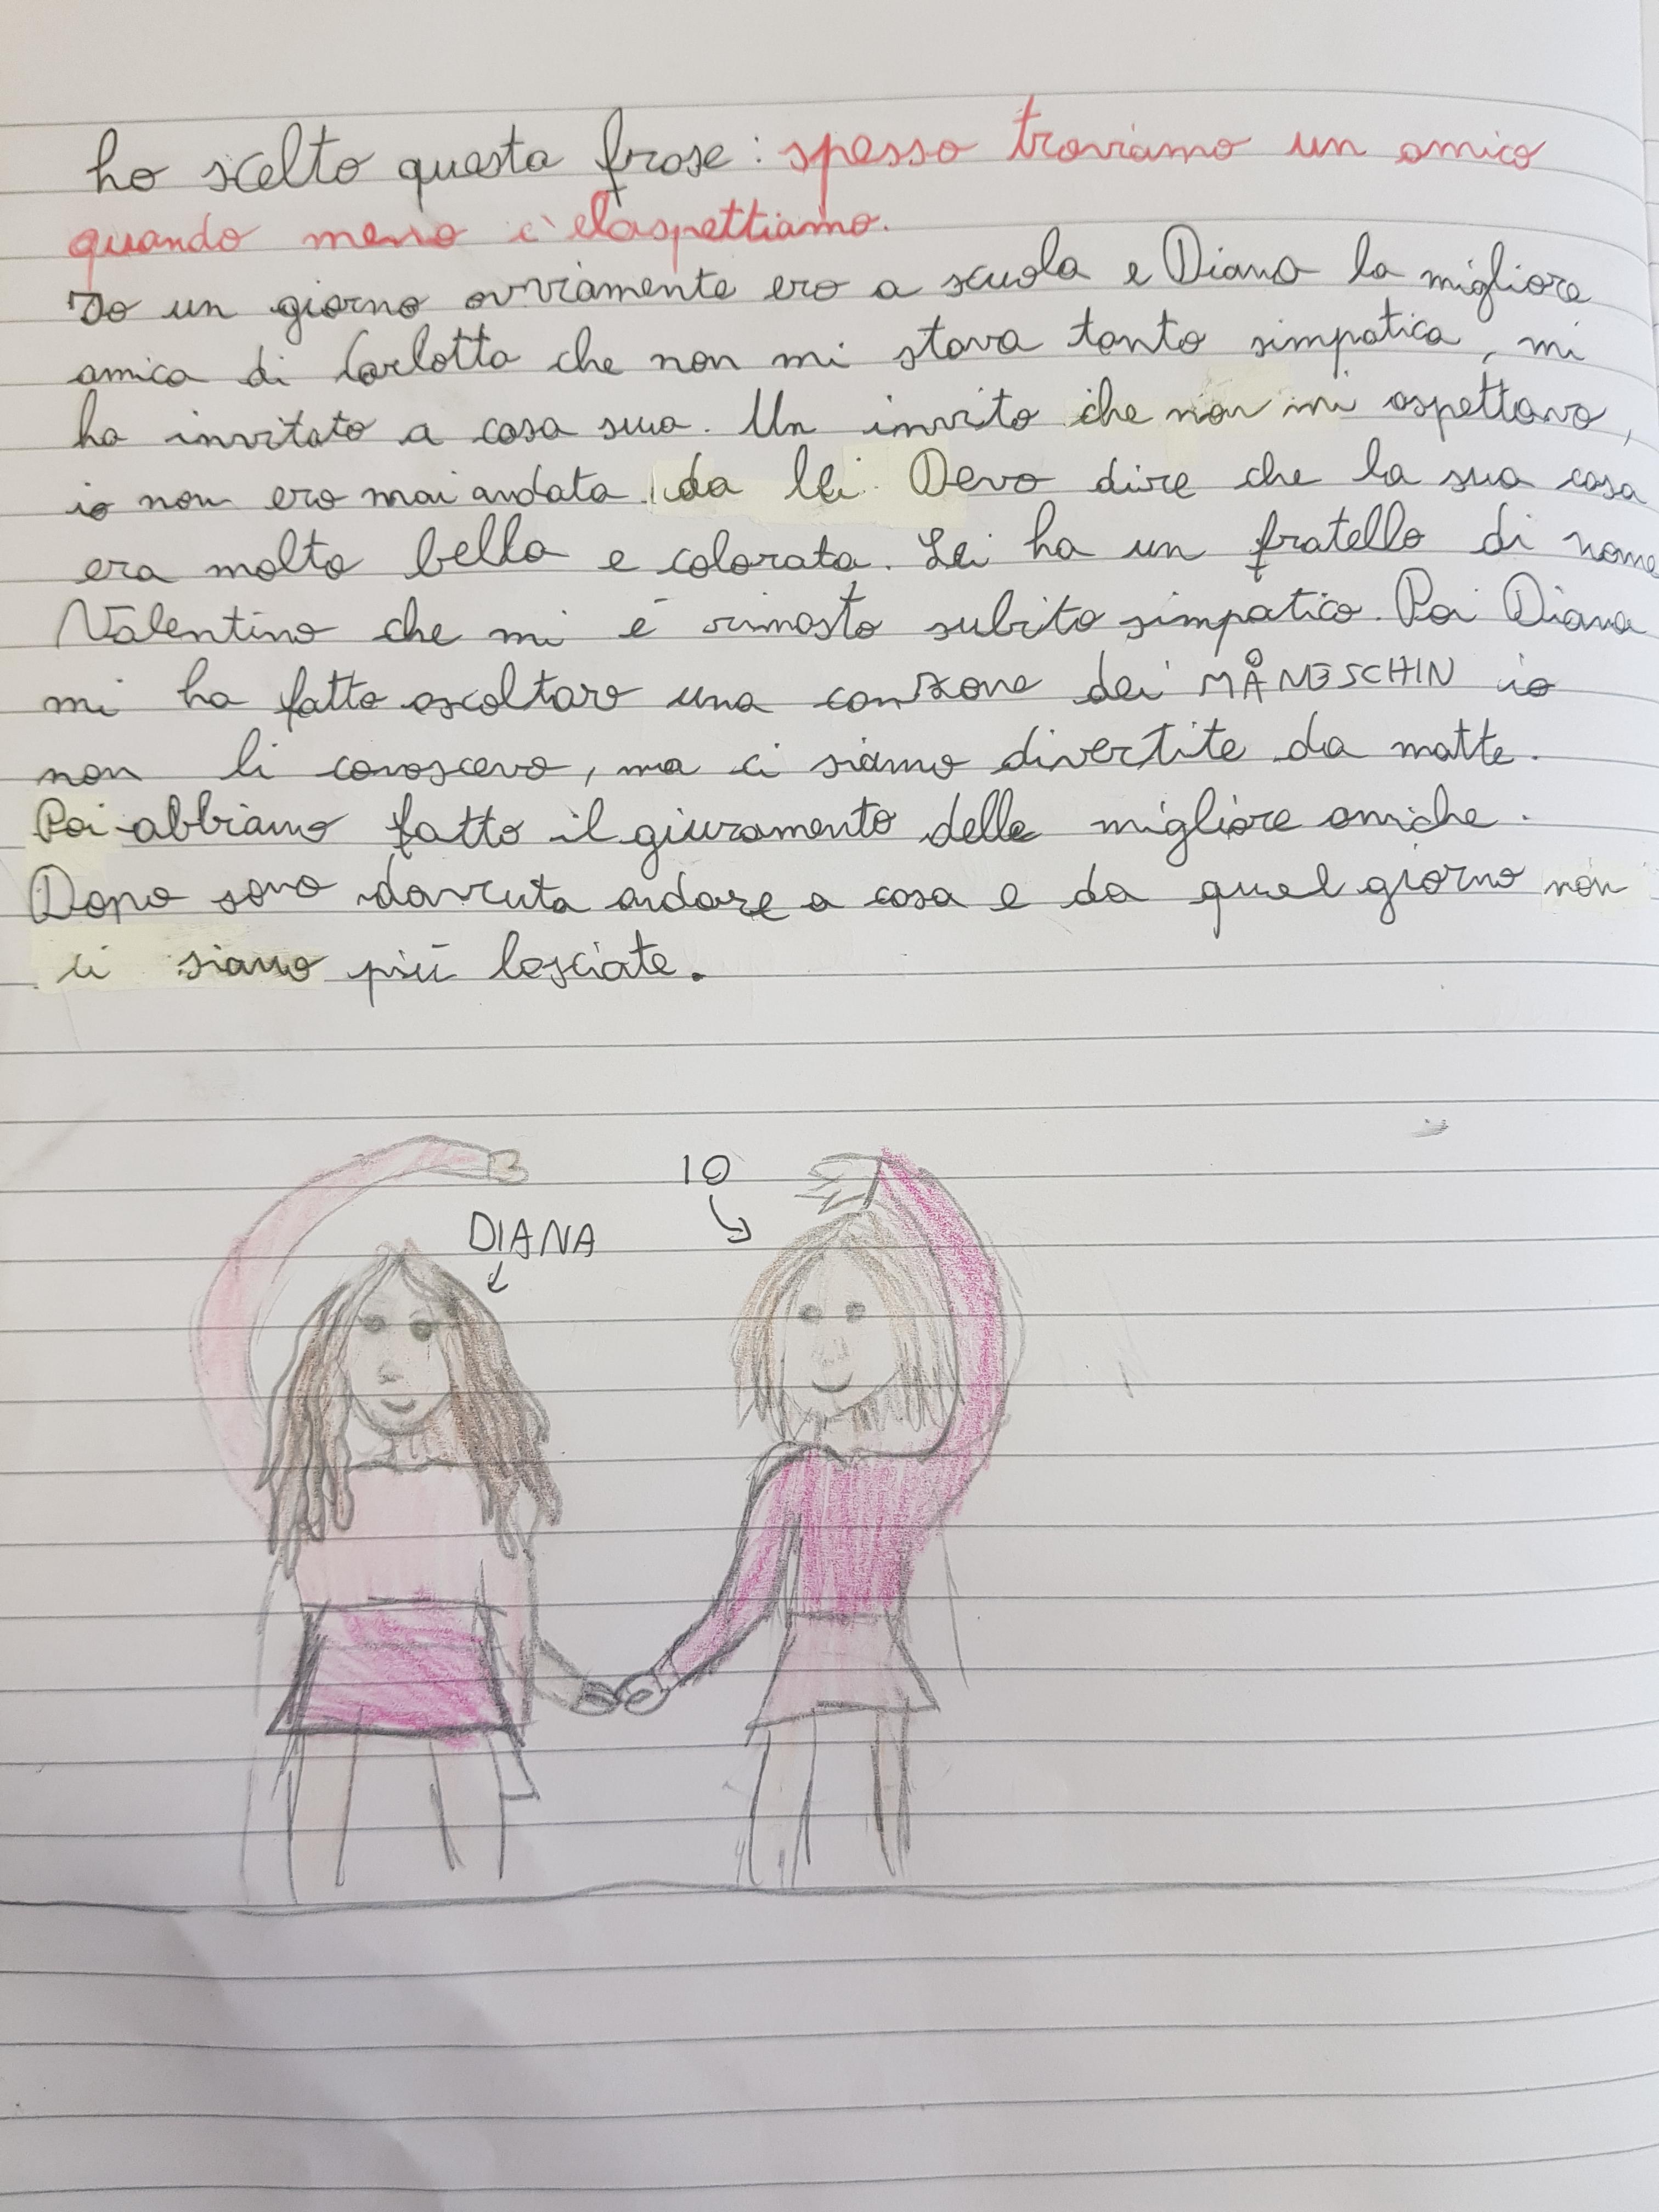 ho scelto questa frase: spesso troviamo un amico
quando meno c'elaspettiamo.
Io un giorno ovviamente ero a scuola e Diana la migliore
amica di Carlotta che non mi stava tanto simpatica, mi
ha invitato a casa sua. Un invito che non mi aspettavo,
io non ero mai andata da lei. Devo dire che la sua casa
era molto bella e colorata. Lei ha un fratello di nome
Valentino che mi è rimasto subito simpatico. Poi Diana
mi ha fatto ascoltare una canzone dei MÅNESCHIN io
non li conoscevo, ma ci siamo divertite da matte.
Poi abbiamo fatto il giuramento delle migliore amiche.
Dopo sono dovuta andare a casa e da quel giorno non
ci siamo più lasciate.
IO
DIANA